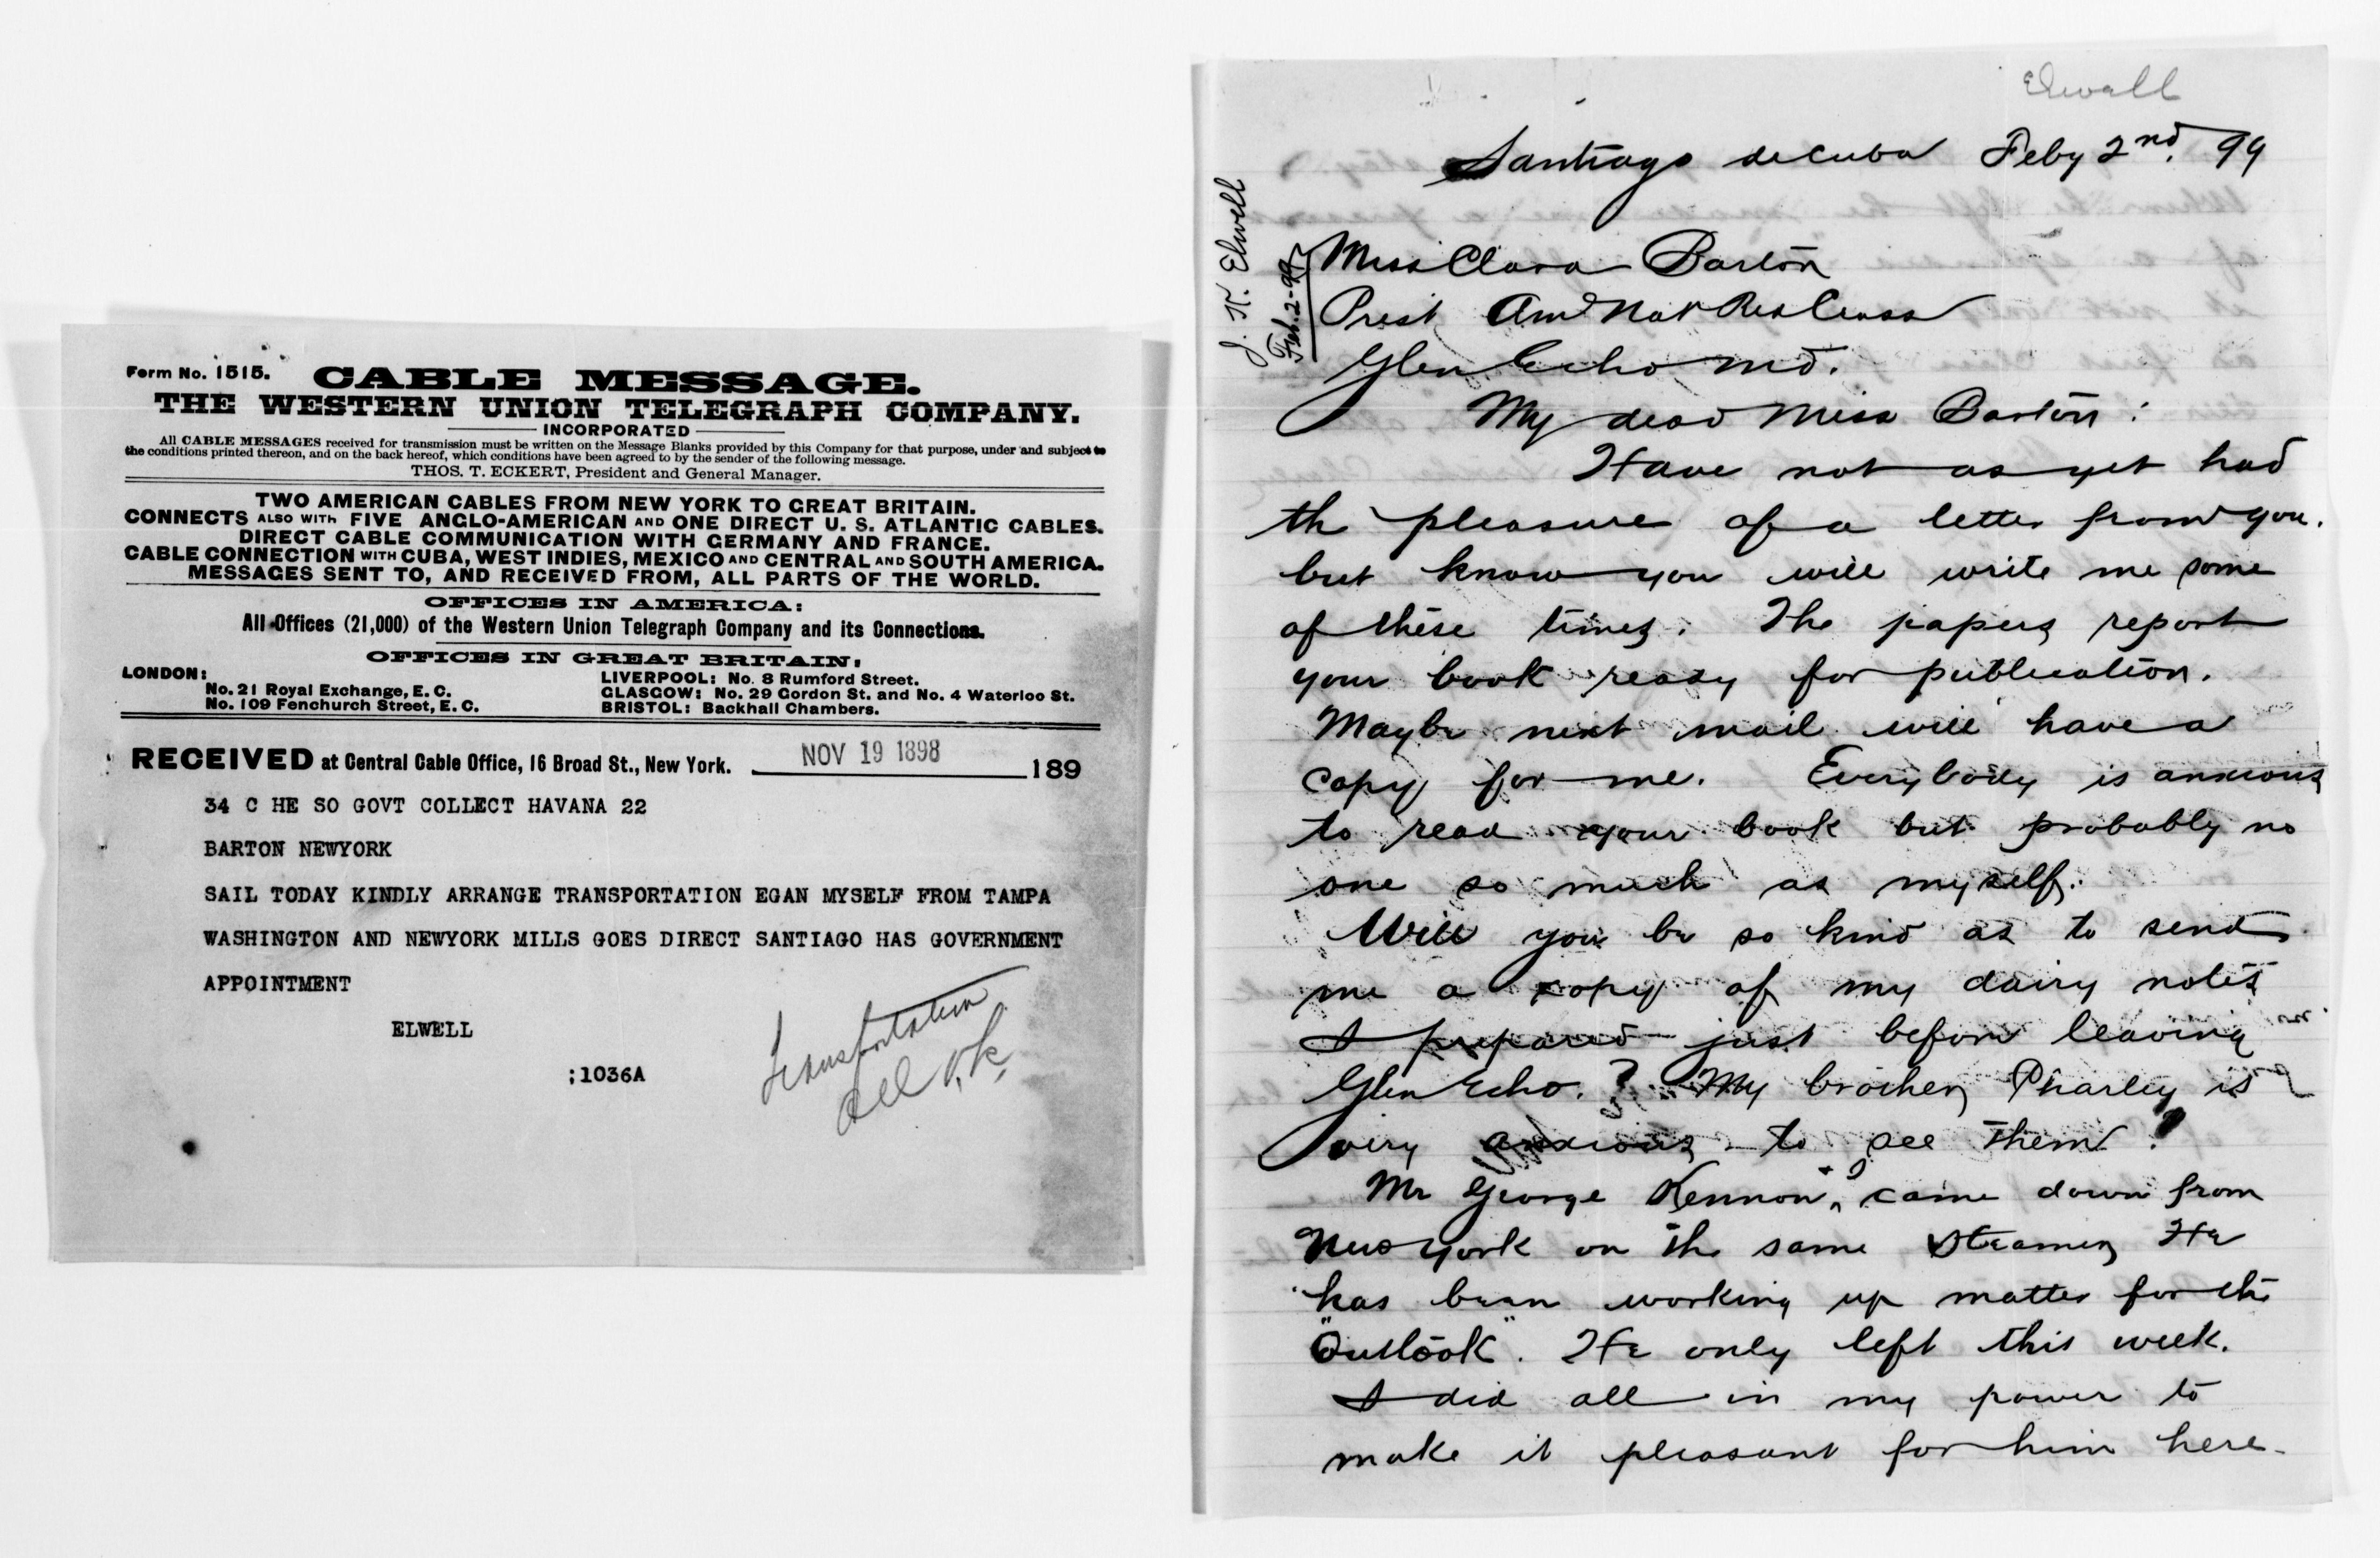 Form No. 1515.
CABLE MESSAGE.
THE WESTERN UNION TELEGRAPH COMPANY.
INCORPORATED
All CABLE MESSAGES received for transmission must be written on the Message Blanks provided by this Company for that purpose, under and subject to
the conditions printed thereon, and on the back hereof, which conditions have been agreed to by the sender of the following message.
THOS. T. ECKERT, President and General Manager.
TWO AMERICAN CABLES FROM NEW YORK TO GREAT BRITAIN.
CONNECTS ALSO WITH FIVE ANGLO-AMERICAN AND ONE DIRECT U. S. ATLANTIC CABLES.
DIRECT CABLE COMMUNICATION WITH GERMANY AND FRANCE.
CABLE CONNECTION WITH CUBA, WEST INDIES, MEXICO AND CENTRAL AND SOUTH AMERICA.
MESSAGES SENT TO, AND RECEIVED FROM, ALL PARTS OF THE WORLD.
OFFICES IN AMERICA:
All Offices (21,000) of the Western Union Telegraph Company and its Connections.
OFFICES IN GREAT BRITAIN:
LONDON:
No. 21 Royal Exchange, E. C.
No. 109 Fenchurch Street, E. C.
LIVERPOOL: No. 8 Rumford Street.
GLASGOW: No. 29 Gordon St. and No. 4 Waterloo St.
BRISTOL: Backhall Chambers.
RECEIVED at Central Cable Office, 16 Broad St., New York. NOV 19 1898 189
34 C HE SO GOVT COLLECT HAVANA 22
BARTON NEWYORK
SAIL TODAY KINDLY ARRANGE TRANSPORTATION EGAN MYSELF FROM TAMPA
WASHINGTON AND NEWYORK MILLS GOES DIRECT SANTIAGO HAS GOVERNMENT
APPOINTMENT
ELWELL
;1036A
Transportation
all O.K.
Elwell
J. K. Elwell
Feb. 2-99
Santiago de Cuba Feby 2nd. 99
Miss Clara Barton
Prest Am Nat Red Cross
Glen Echo Md.
My dear Miss Barton:
Have not as yet had
the pleasure of a letter from you.
but know you will write me some
of these times. The papers report
your book ready for publication.
Maybe next mail will have a
copy for me. Everybody is anxious
to read your book but probably no
one so much as myself.
Will you be so kind as to send
me a copy of my dairy notes
I prepared just before leaving
Glen Echo.? My brother, Charley is
very anxious to see them.
Mr George Kennon, & I came down from
New York on the same steamer, He
has been working up matter for the
"Outlook". He only left this week.
I did all in my power to
make it pleasant for him here.